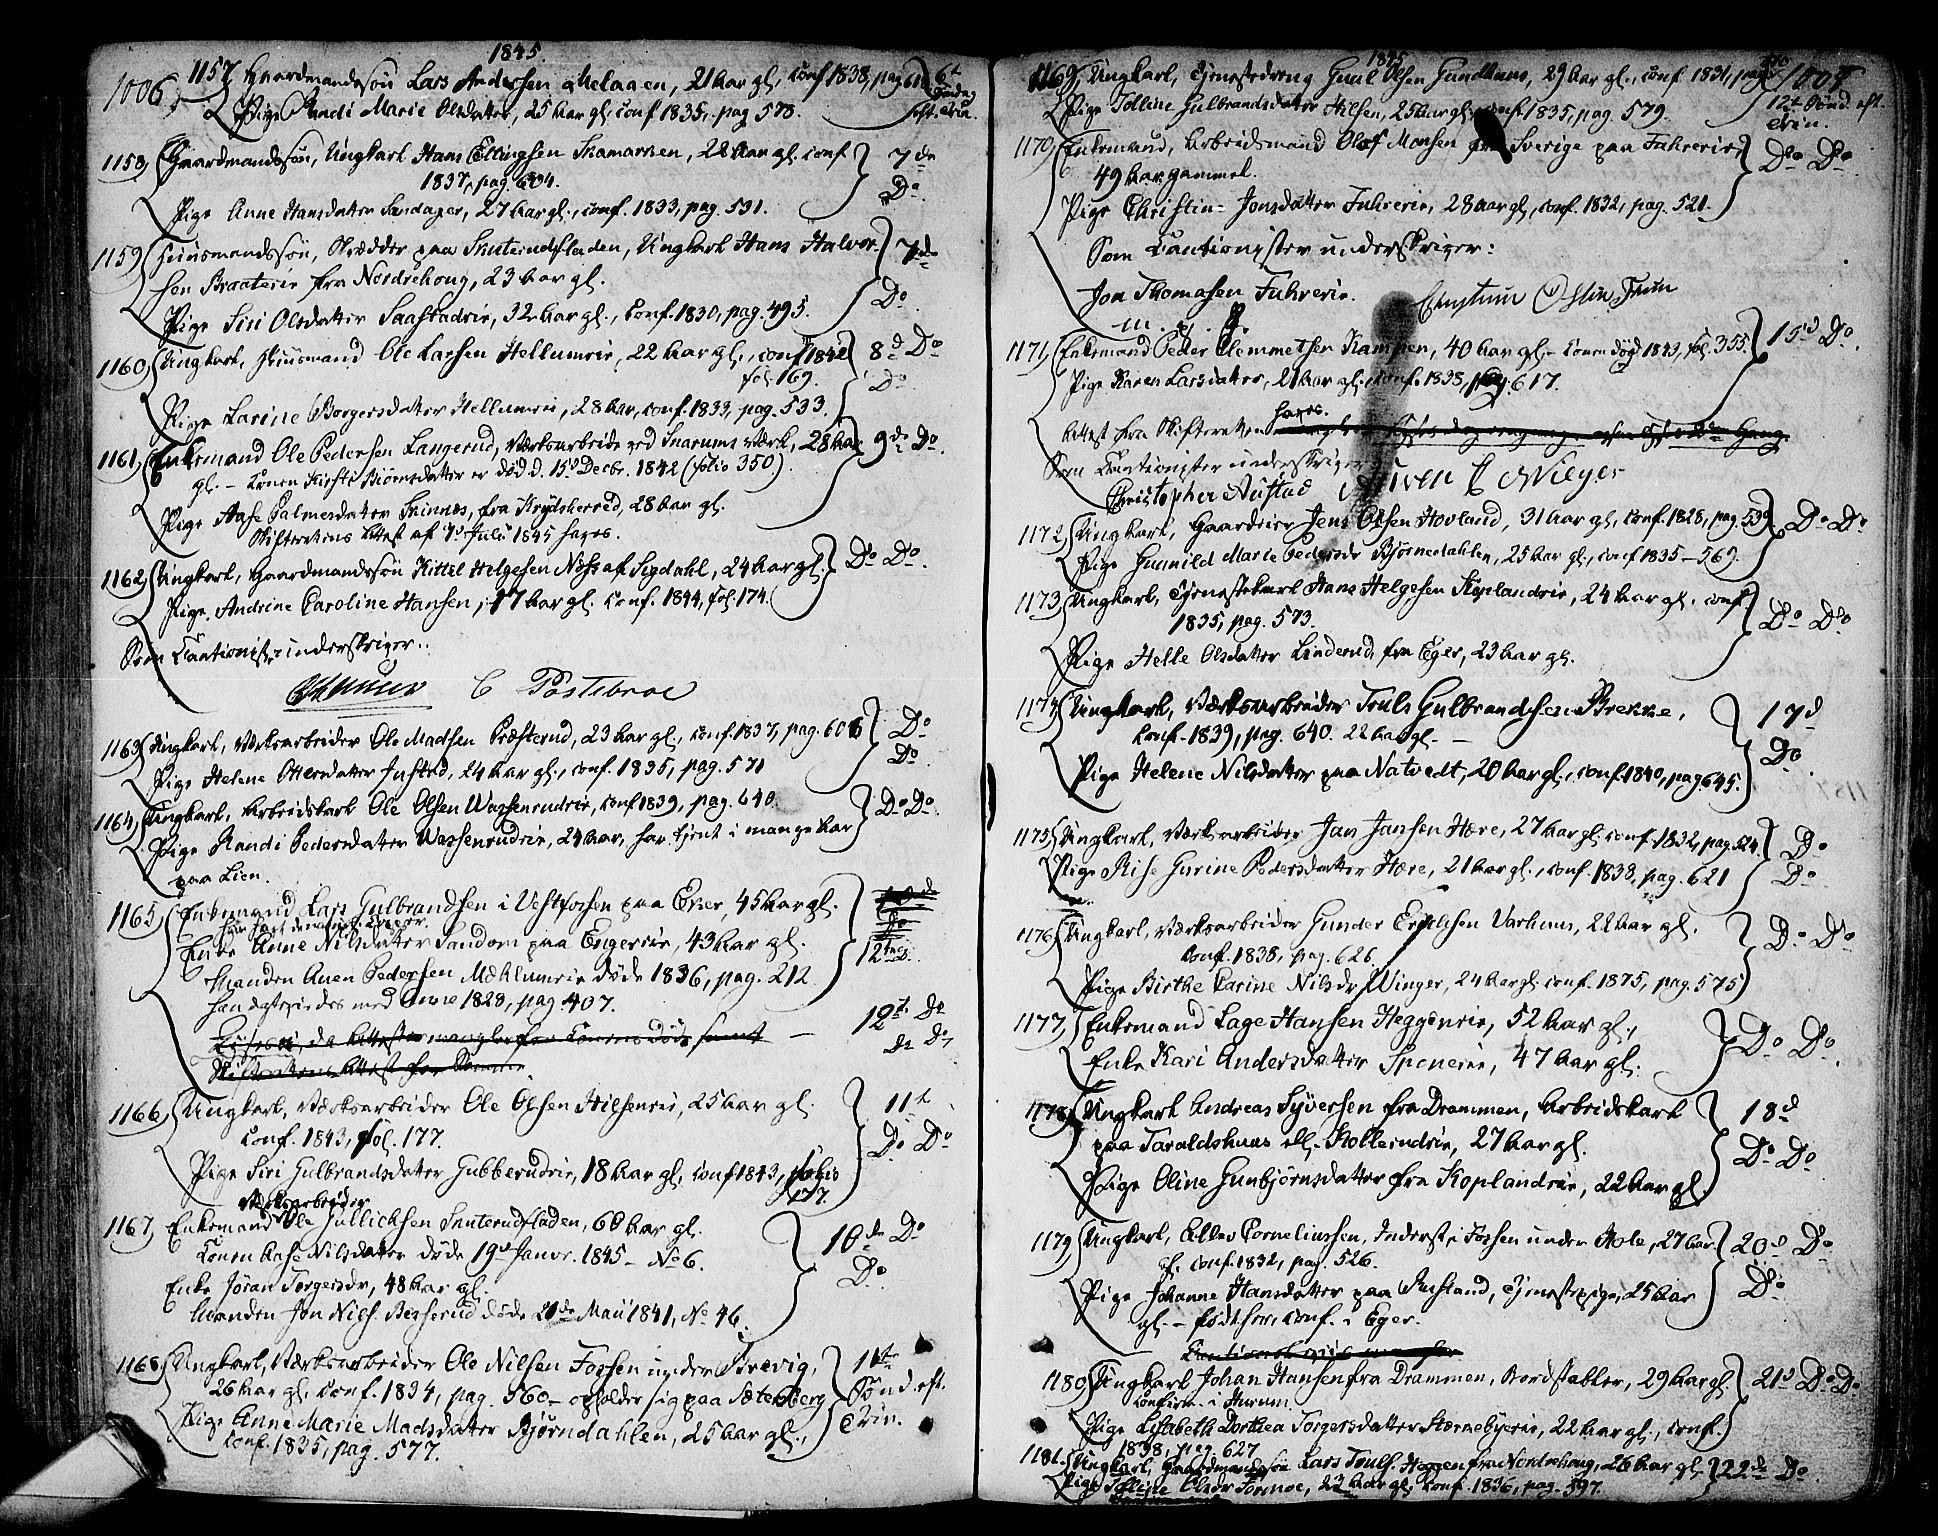 1845.
1006.
1157, Gaardmandssøn Lars Andersen Melaaen, 21 Aar gl, Conf 1838, pag 618 6t Søndag
Pige Randi Marie Olsdatter, 25 Aar gl, Conf 1835, pag 578. eft. Trin.
1158, Gaardmandssøn, Ungkarl Hans Ellingsen Skamarken, 22 Aar gl. Conf 7de
1837, pag. 604. Do
Pige Anne Hansdatter Sandager, 27 Aar gl., Conf. 1833, pag. 531.
1159, Huusmandssøn, Skrædder paa Snuterudfladen, Ungkarl Hans Halvor- 7de
sen Braaterie fra Norderhoug, 23 Aar gl.
Pige Siri Olsdatter Saastadrie, 32 Aar gl., Conf. 1830, pag. 495. Do
1160, Ungkarl, Huusmand Ole Larsen Hellumrie, 22 Aar gl., Conf 1842 8d Do
fol. 169. Do
Pige Karine Borgersdatter Hellumrie, 28 Aar, Conf. 1833, pag. 533.
1161, Enkemand Ole Pedersen Langerud, Værksarbeider ved Snarums Værk, 28 Aar 9de Do.
gl. - Konen Kirsti Biørnsdatter er død d. 15d Decbr. 1842 (folio 350).
Pige Aase Palmesdatter Skinnes, fra Krydsherred, 28 Aar gl.
Skifterettens Attest af 7d Juli 1845 haves.
1162, Ungkarl, Gaardmandssøn Kittel Helgesen Næss af Sigdahl, 24 Aar gl. Do Do.
Pige Andrine Caroline Hansen, 17 Aar gl. Conf. 1844, fol. 174.
Som Cautionister underskriver:
C Pastebroe
1163, Ungkarl, Værksarbeider Ole Madsen Præsterud, 23 Aar gl., Conf. 1837, pag. 606 Do
Pige Helene Ottersdatter Justad, 24 Aar gl., Conf. 1835, pag. 571 Do
1164, Ungkarl, Arbeidskarl Ole Olsen Wassenrudrie, Conf 1839, pag. 640. Do Do.
Pige Randi Pedersdatter Wassenrudrie, 24 Aar, har tjent i mange Aar
paa Lien.
1165, Enkemand Lars Gulbrandsen i Vestfossen paa Eker, 45 Aar gl.
Enke Anne Nilsdatter Sandom paa Engerrie, 43 Aar gl. 12te
Manden Auen Pedersen Mæhlumrie døde 1836, pag. 212
han ægteviedes med Anne 1828, pag 407.
12t Do
Do Do
1166, Ungkarl, Værksarbeider Ole Olsen Hilsenrie, 25 Aar gl. 11t
Conf. 1843, fol. 177. Do Do
Pige Siri Gulbrandsdatter Gubberudrie, 18 Aar gl, Conf 1843, folio
177.
Værksarbeider
1167, Enkemand Ole Gullichsen Snuterudfladen, 60 Aar gl. 10de Do
Konen Aase Nilsdatter døde 19d Janvr. 1845 - No 6.
Enke Jøran Torgersdr, 48 Aar gl. Do
Manden Jon Nils. Besserud døde 20de Mai 1841, No 46.
1168, Ungkarl, Værksarbeider Ole Nilsen Fossen under Brevig, 11te
26 Aar gl. Conf. 1834, pag. 560 - opholder sig paa Sætersberg Sønd. eft.
Pige Anne Marie Madsdatter Bjørndahlen, 25 Aar gl., Trin.
Conf. 1835, pag. 577.
1845
1007
1169, Ungkarl, Tjenestedreng Guul Olsen Gundhuus, 29 Aar gl., Conf 1831, pag
Pige Tolline Gulbrandsdatter Hilsen, 25 Aar gl., Conf. 1835, pag. 579. 12t Sønd. eft.
Trin.
1170, Enkemand, Arbeidsmand Olof Monsen fra Sverige paa Fuhrerie, Do Do.
49 Aar gammel.
Pige Christin Jonsdatter Fuhrerie, 28 Aar gl, Conf. 1832, pag. 521.
Som Cautionister underskriver:
Jon Thomasen Fuhrerie.
m. p. P.
1171, Enkemand Peder Clemmetsen Kampen, 40 Aar gl - Konen død 1843, fol. 355. 15d Do.
Pige Karen Larsdatter, 21 Aar gl., Conf. 1838, pag. 617.
Attest fra Skifteretten haves.
Som Cautionister underskriver
Christopher Austad
1172, Ungkarl, Gaardeier Jens Olsen Hovland, 31 Aar gl, Conf. 1828, pag. 539. Do Do
Pige Gunnild Marie Pedersdr Bjørnedahlen, 25 Aar gl., Conf 1835 - 569.
1173, Ungkarl, Tjenestekarl Hans Helgesen Koplandrie, 24 Aar gl. Conf
1835, pag. 573. Do Do
Pige Helle Olsdatter Linderud, fra Eger, 23 Aar gl.
1174, Ungkarl, Værksarbeider Truls Gulbrandsen Brekke, 17d
Conf. 1839, pag. 640. 22 Aar gl. - Do
Pige Helene Nilsdatter paa Natvedt, 20 Aar gl., Conf. 1840, pag 645.
1175, Ungkarl, Værksarbeider Jan Jansen Hære, 27 Aar gl, Conf. 1832, pag 524. Do
Pige Rise Gurine Pedersdatter Hære, 21 Aar gl., Conf 1838, pag. 621 Do
1176, Ungkarl, Værksarbeider Gunder Erichsen Varhuus, 22 Aar gl. Do Do
Conf. 1838, pag. 626.
Pige Birthe Carine Nilsdr Winger, 24 Aar gl. Conf. 1875, pag. 575
1177, Enkemand Lage Hansen Heggenrie, 52 Aar gl., Do Do
Enke Kari Andersdatter Spenerie, 47 Aar gl.
1178, Ungkarl Andreas Syversen fra Drammen, Arbeidskarl 18d
paa Taraldshuus ell. Kollerudrie, 27 Aar gl. Do Do
Pige Oline Gunbjørnsdatter fra Koplandrie, 22 Aar gl.
1179, Ungkarl, Ellev Corneliussen, Inderst i Fossen under Hole, 27 Aar 20d Do
gl. Conf. 1832, pag. 526. Do
Pige Johanne Hansdatter paa Rustand, Tjenestepige, 25 Aar
gl. - født her, Conf. i Eger.
1180, Ungkarl Johan Hansen fra Drammen, Bordstabler, 29 Aar gl. 21d Do Do
Confirm. i Hurum.
Pige Lisabeth Dorthea Torgersdatter Stærnebyerie, 22 Aar gl., Conf.
1838, pag. 627
1181, Ungkarl, Gaardmandssøn Lars Truls. Heggen fra Norderhoug, 26 Aar gl. 22d Do.
Pige Olsdr Formoe, 23 Aar gl, Conf. 1836, pag. 597.